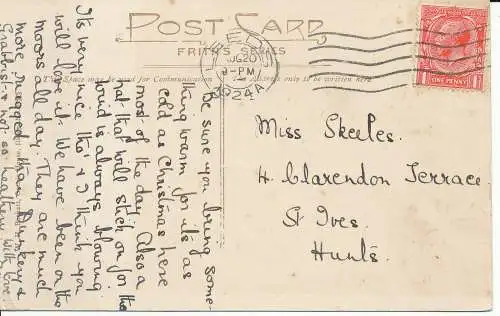 POST CARD
FRITH'S SERIES
This Space may be used for Communication
The Address only to be written here
LEEDS
AUG 20
9-PM
1924
ONE PENNY
Be sure you bring some-
thing warm for its as
cold as Christmas here
most of the day. Also a
hat that will stick on for the
wind is always blowing.
Its very nice tho' & I think you
will love it. We have been on the
moors all day. They are much
more rugged than Dunkery &
& not so heathery. With love
Miss Skeeles.
4 Clarendon Terrace.
St Ives.
Hunts.